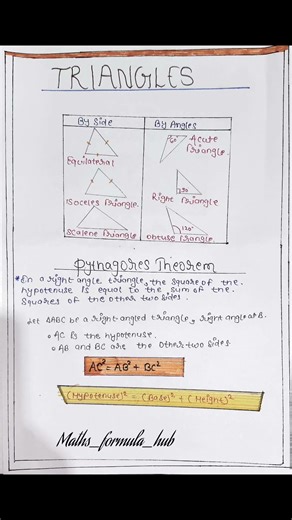 TRIANGLES
By Side
By Angles
Equilateral
60°
Acute
Triangle.
Isoceles Triangle.
90
Right Triangle
Scalene Triangle
120°
Obtuse Triangle.
Pynagores Theorem
*On a right angle triangle, the square of the.
hypotenuse is equal to the sum of the.
squares of the other two sides.
Let ΔABC be a right-angled triangle, right angle at B.
AC is the hypotenuse.
AB and BC are the other two sides
AC² = AB² + BC²
(Hypotenuse)² = (Base)² + (Height)²
Maths_formula_hub